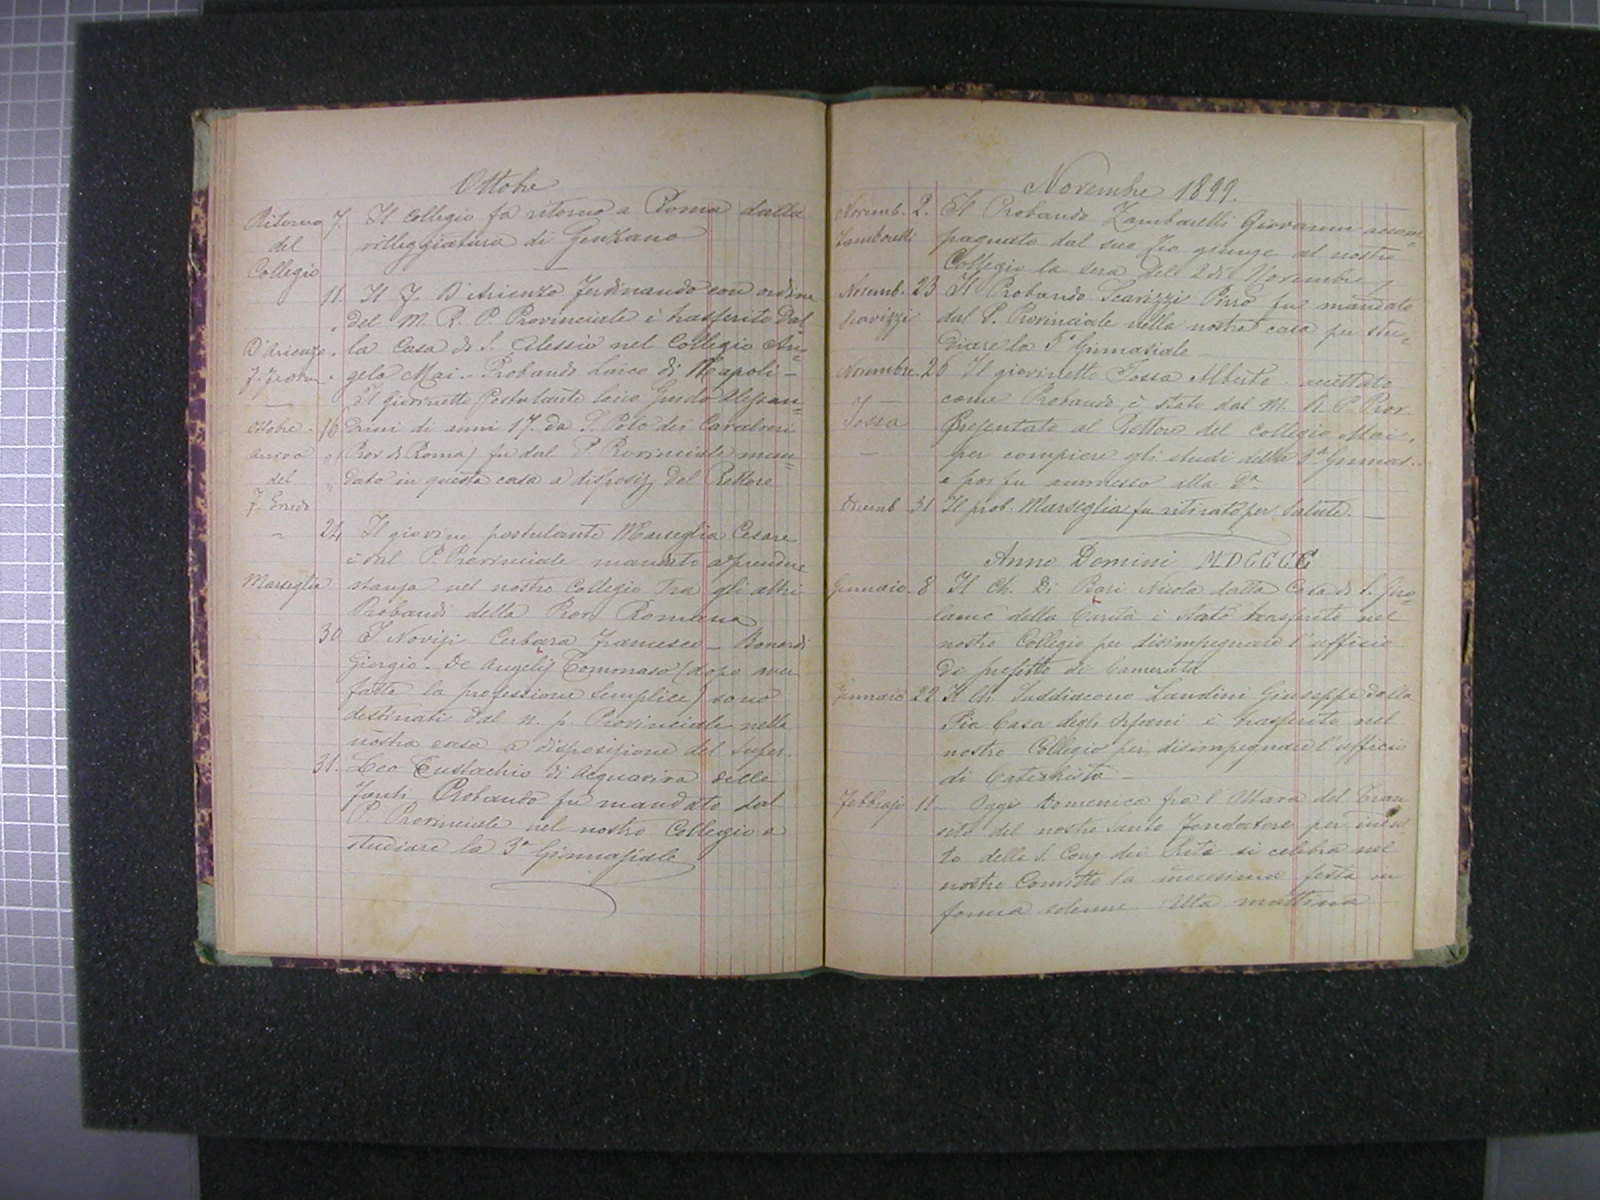 Ottobre
Ritorno 7. Il Collegio fa ritorno a Roma dalla
del villeggiatura di Genzano
Collegio
11. Il F. D'Arienzo Ferdinando con ordine
del M. R. P. Provinciale è trasferito dal-
D'Arienzo. la Casa di S. Alessio nel Collegio An=
gelo Mai. Probando Laico di Napoli -
Il giovinetto Postulante laico Guido Alessan=
Ottobre - 16 drini di anni 17. da S. Polo dei Cavalieri
arrivo Prov. di Roma) fu dal P. Provinciale man=
del dato in questa casa a disposiz. del Rettore
F. Guido
" 24 Il giovine postulante Marseglia Cesare
è dal P. Provinciale mandato a prendere
Marseglia stanza nel nostro Collegio tra gli altri
Probandi della Prov. Romana
30 I Novizi Cerbara Francesco - Bonardi
Giorgio - De Angelis Tommaso (dopo aver
fatto la professione semplice) sono
destinati dal M. P. Provinciale nella
nostra casa a disposizione del Super.
31. Leo Eustachio di Acquaviva delle
Fonti Probando fu mandato dal
P. Provinciale nel nostro Collegio a
studiare la 3a Ginnasiale
Novembre 1899.
Novemb. 2. Il Probando Zambarelli Giovanni accom=
Zambarelli pagnato dal suo Zio giunge al nostro
Collegio la sera del 2 di Novembre
Novemb. 23 Il Probando Scarizzi Pirro fu mandato
Scarizzi dal P. Provinciale nella nostra casa per stu=
diare la 5a Ginnasiale
Novembre 20 Il giovinetto Fossa Alberto accettato
come Probando, è stato dal M. R. P. Prov.
Fossa presentato al Rettore del Collegio Mai.
per compiere gli studi della 1a Ginnas..
e poi fu ammesso alla 2a
Dicemb. 31 Il prob. Marseglia fu ritirato per salute.
Anno Domini MDCCCC
Gennaio 8 Il Ch. Di Bari Nicola dalla Casa di S. Giro=
lamo della Carità è stato trasferito nel
nostro Collegio per disimpegnare l'ufficio
di prefetto di Camerata
Gennaio 22 Il Ch. Suddiacono Landini Giuseppe dalla
Pia Casa degli Orfani è trasferito nel
nostro Collegio per disimpegnare l'ufficio
di Catechista -
Febbraio 11 - Oggi Domenica fra l'Ottava del Tran
sito del nostro Santo Fondatore per indul
to della S. Cong. dei Riti si celebra nel
nostro Convitto la medesima festa in
forma solenne. Alla mattina